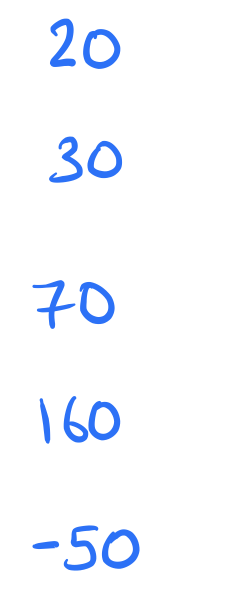 20
30
70
160
-50